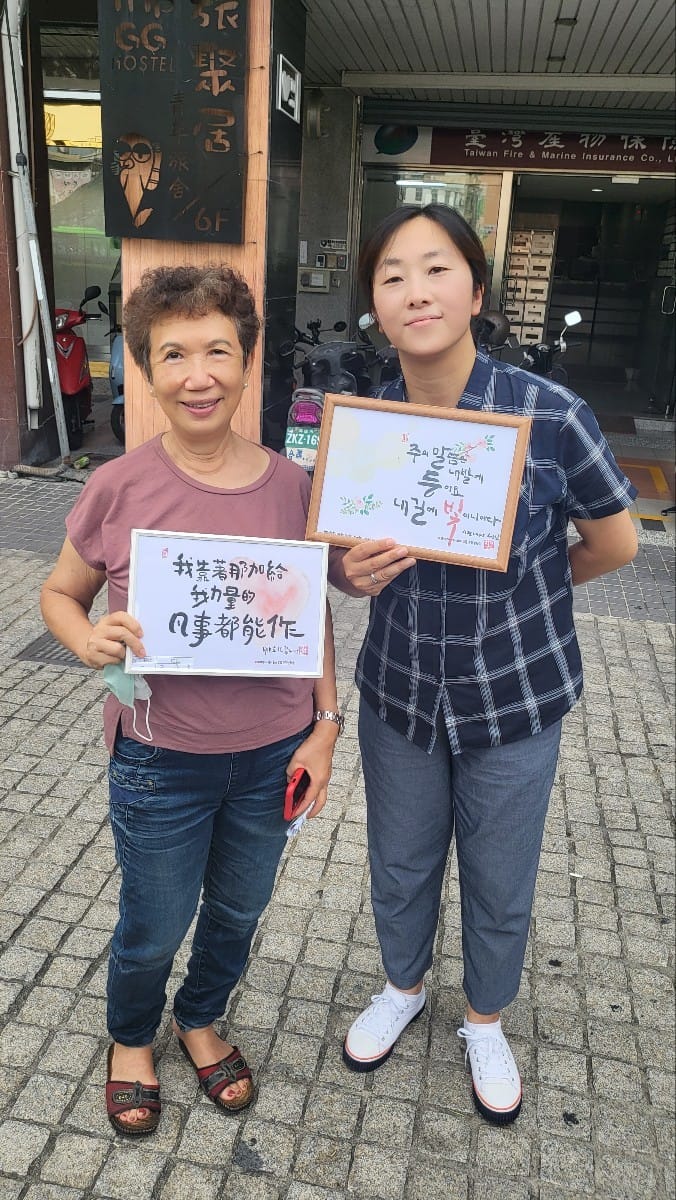 GG
HOSTEL
旅聚居
6F
臺灣產物保險
Taiwan Fire & Marine Insurance Co., L
주의 말씀은
내 발에
등이요
내 길에 빛이니이다
我靠著那加給
我力量的
凡事都能作